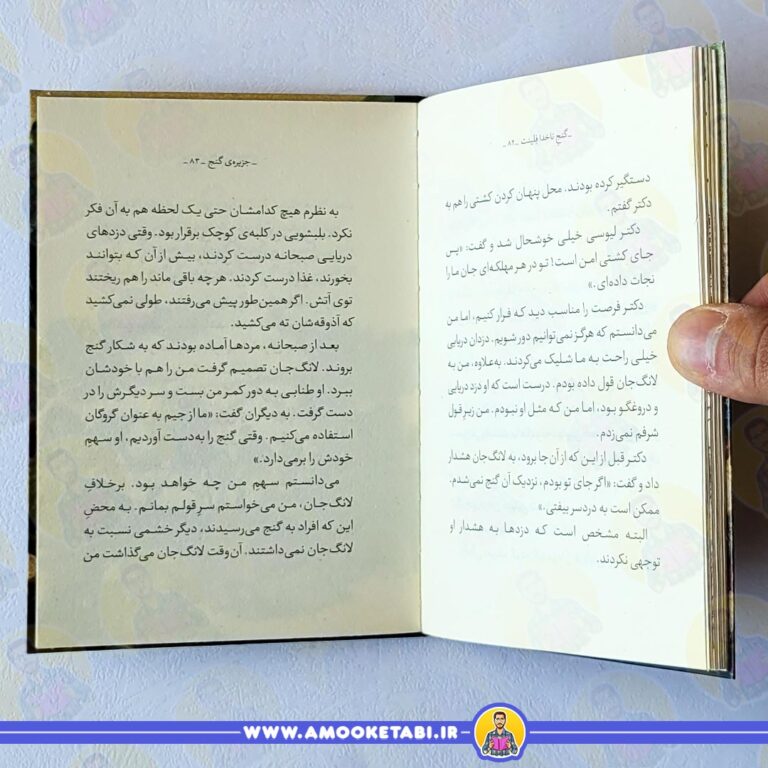 ـ گنج ناخدا فلینت ـ ۸۲ ـ
دستگیر کرده بودند. محل پنهان کردن کشتی را هم به
دکتر گفتم.
دکتر لیوسی خیلی خوشحال شد و گفت: «پس
جای کشتی امن است! تو در هر مهلکه‌ای جان ما را
نجات داده‌ای.»
دکتر فرصت را مناسب دید که فرار کنیم، اما من
می‌دانستم که هرگز نمی‌توانیم دور شویم. دزدان دریایی
خیلی راحت به ما شلیک می‌کردند. به‌علاوه، من به
لانگ‌جان قول داده بودم. درست است که او دزد دریایی
و دروغگو بود، اما من که مثل او نبودم. من زیرِ قول
شرفم نمی‌زدم.
دکتر قبل از این که از آن‌جا برود، به لانگ‌جان هشدار
داد و گفت: «اگر جای تو بودم، نزدیک آن گنج نمی‌شدم.
ممکن است به دردسر بیفتی.»
البته مشخص است که دزدها به هشدار او
توجهی نکردند.
ـ جزیره‌ی گنج ـ ۸۳ ـ
به نظرم هیچ کدامشان حتی یک لحظه هم به آن فکر
نکرد. بلبشویی در کلبه‌ی کوچک برقرار بود. وقتی دزدهای
دریایی صبحانه درست کردند، بیش از آن که بتوانند
بخورند، غذا درست کردند. هر چه باقی ماند را هم ریختند
توی آتش. اگر همین‌طور پیش می‌رفتند، طولی نمی‌کشید
که آذوقه‌شان ته می‌کشید.
بعد از صبحانه، مردها آماده بودند که به شکار گنج
بروند. لانگ‌جان تصمیم گرفت من را هم با خودشان
ببرد. او طنابی به دور کمر من بست و سر دیگرش را در
دست گرفت. به دیگران گفت: «ما از جیم به عنوان گروگان
استفاده می‌کنیم. وقتی گنج را به‌دست آوردیم، او سهمِ
خودش را برمی‌دارد.»
می‌دانستم سهم من چه خواهد بود. برخلافِ
لانگ‌جان، من می‌خواستم سرِ قولم بمانم. به محضِ
این که افراد به گنج می‌رسیدند، دیگر خشمی نسبت به
لانگ‌جان نمی‌داشتند. آن‌وقت لانگ‌جان می‌گذاشت من
WWW.AMOOKETABI.IR